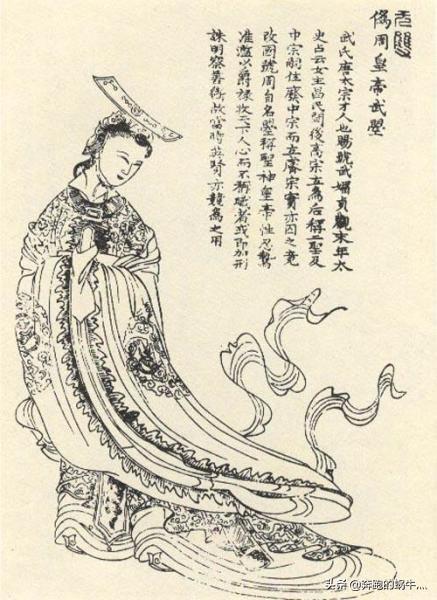 无雙
偽周皇帝武曌
武氏唐太宗才人也賜號武媚貞觀末年太
史占云女主昌民間後高宗立為后稱二聖及
中宗嗣位廢中宗而立睿宗實亦囚之竟
改國號周自名曌稱聖神皇帝性忍鷙
准濫以爵祿收天下人心而不稱職者或即加刑
誅明察善故當時英賢亦競為之用
头条 @奔跑的蜗牛....